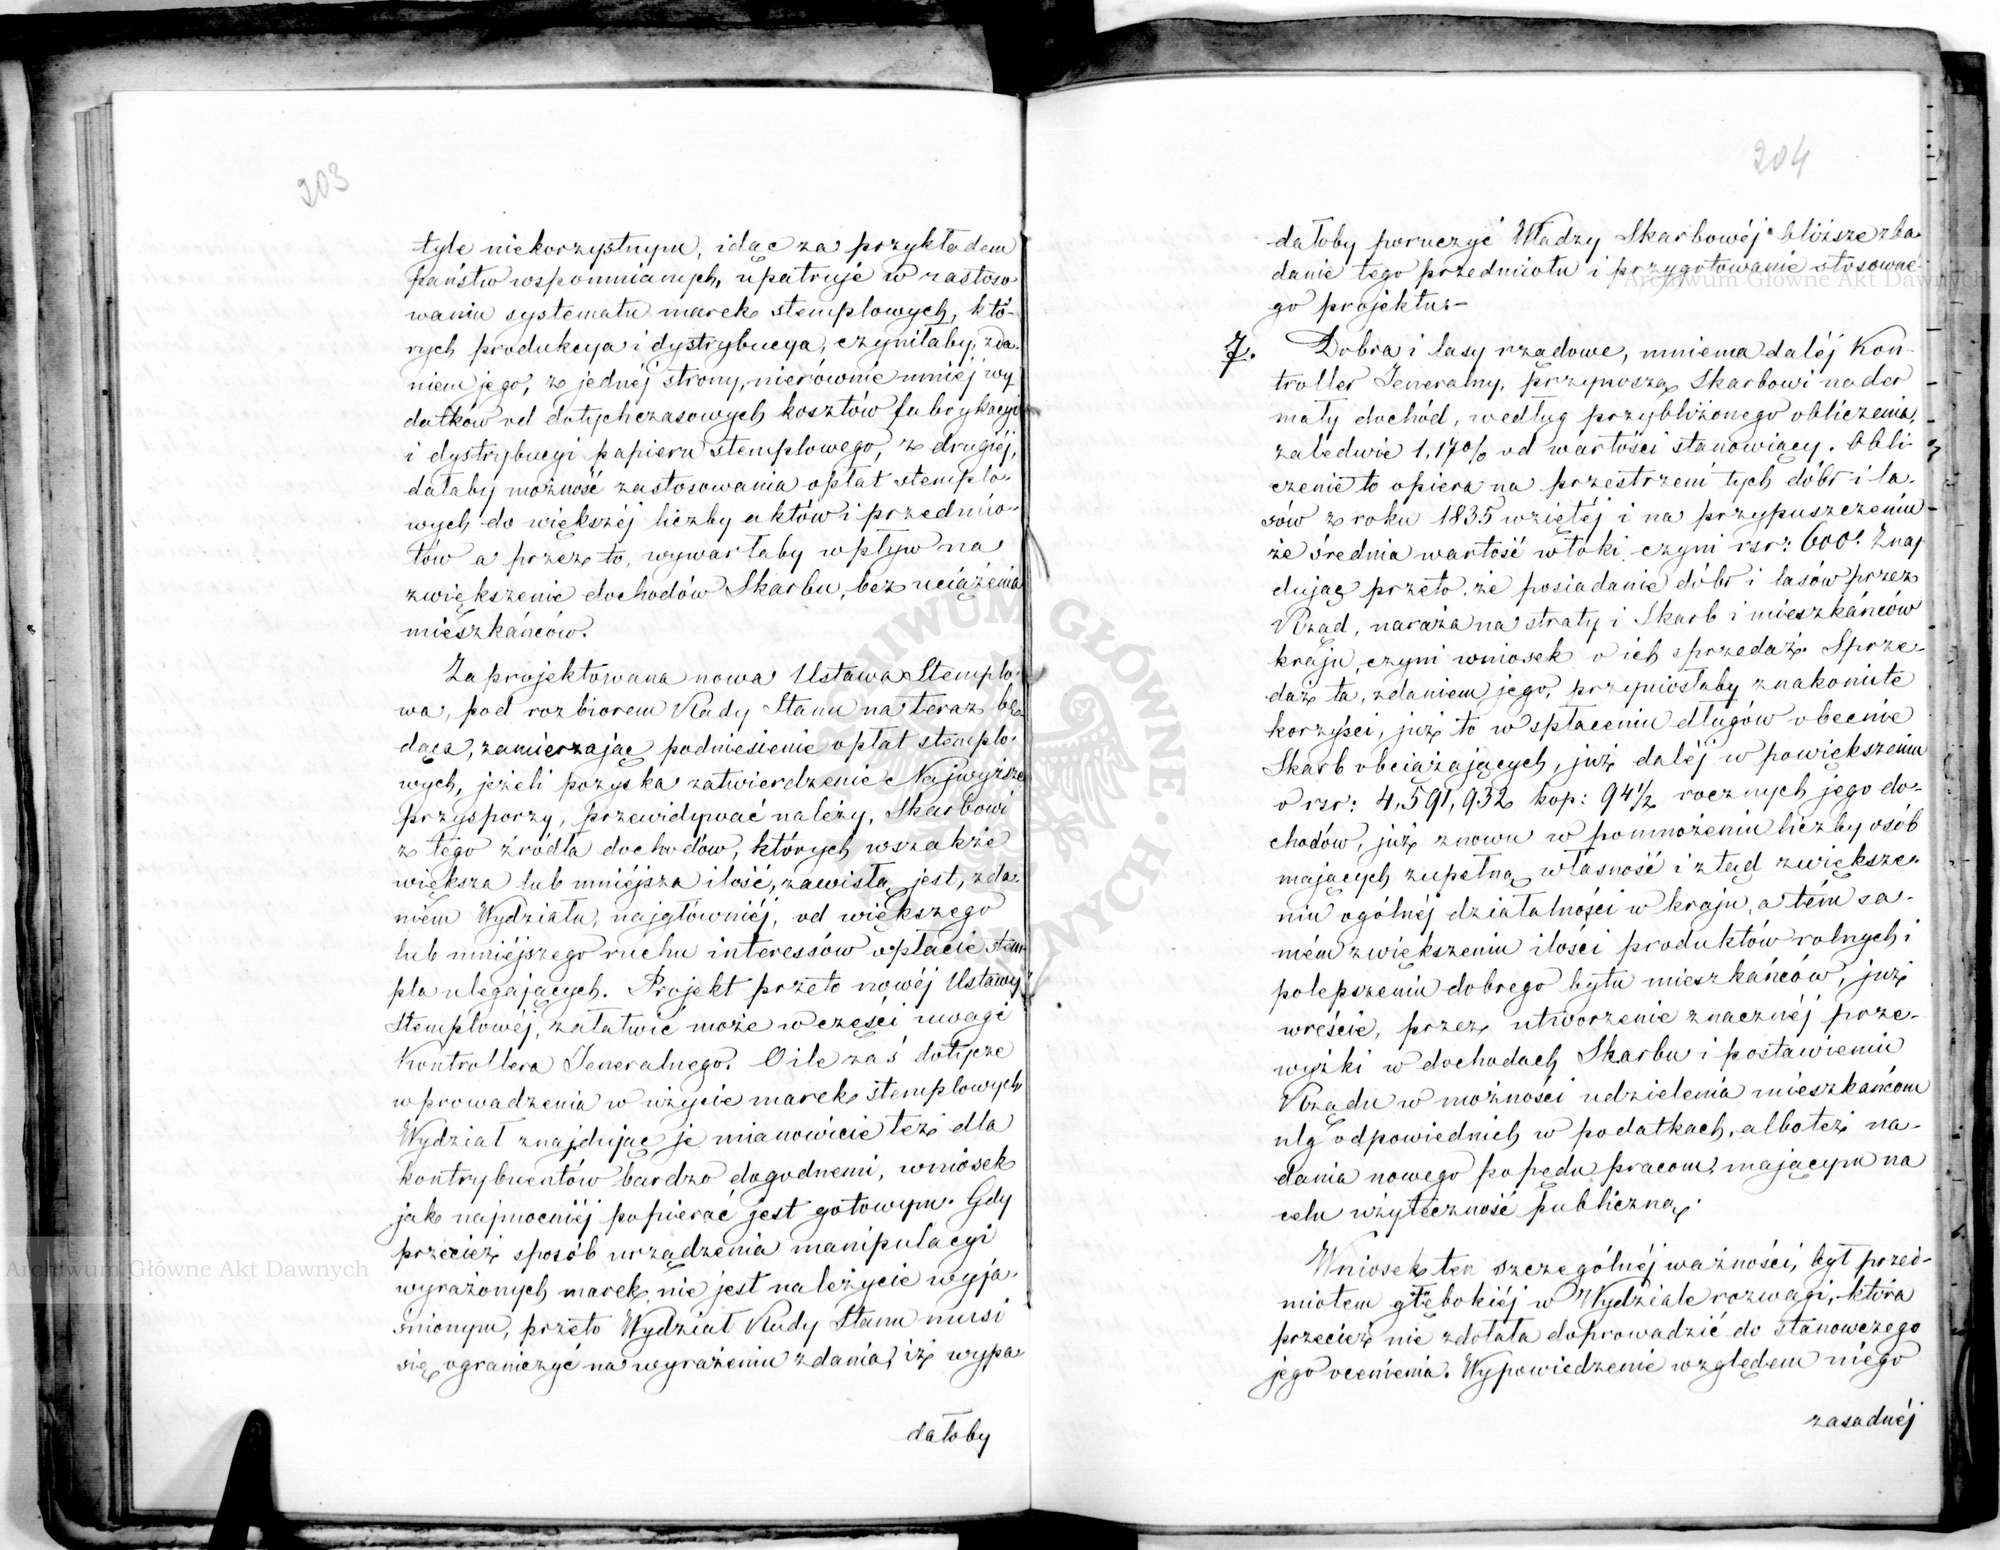 203
tyle niekorzystnym, idąc za przykładem
państw wspomnianych, upatruje w zastoso-
waniu systematu marek stemplowych, któ-
rych produkcya i dystrybucya, czyniłaby, zda-
niem jego, z jednéj strony, nierównie mniéj wy
datków od dotychczasowych kosztów fabrykacyi
i dystrybucyi papieru stemplowego, z drugiéj,
dałaby możność zastosowania opłat stemplo-
wych do większéj liczby aktów i przedmio-
tów a przez to, wywarłaby wpływ na
zwiększenie dochodów Skarbu, bez uciążenia
mieszkańców.
Zaprojektowana nowa Ustawa Stemplo-
wa, pod rozbiorem Rady Stanu na teraz bę-
dąca, zamierzając podniesienie opłat stemplo-
wych, jeżeli pozyska zatwierdzenie Najwyższe
przysporzy, przewidywać należy, Skarbowi
z tego źródła dochodów, których wszakże
większa lub mniéjsza ilość, zawisłą jest, zda-
niem Wydziału, najgłówniéj, od większego
lub mniéjszego ruchu interessów opłacie stem
pla ulegających. Projekt przeto nowéj Ustawy
Stemplowéj, załatwić może w części uwagi
Kontrollera Jeneralnego. O ile zaś dotycze
wprowadzenia w użycie marek stemplowych
Wydział znajdując je mianowicie też dla
kontrybuentów bardzo dogodnemi, wniosek
jak najmocniéj popierać jest gotowym. Gdy
przecież sposób urządzenia manipulacyi
wyrażonych marek nie jest należycie wyja-
śnionym, przeto Wydział Rady Stanu musi
się ograniczyć na wyrażeniu zdania, iż wypa
dałoby
204
dałoby poruczyć Władzy Skarbowéj bliższe zba-
danie tego przedmiotu i przygotowanie stosowne-
go projektu.
7. Dobra i lasy rządowe, mniema daléj Kon-
troller Jeneralny, przynoszą Skarbowi nader
mały dochód, według przybliżonego obliczenia,
zaledwie 1,17% od wartości stanowiący. Obli-
czenie to opiera na przestrzeni tych dóbr i la-
sów z roku 1835 wziętéj i na przypuszczeniu
że średnia wartość włóki czyni rsr: 600. Znaj
dując przeto, że posiadanie dóbr i lasów przez
Rząd, naraża na straty i Skarb i mieszkańców
kraju, czyni wniosek o ich sprzedaż. Sprze-
daż ta, zdaniem jego, przyniosłaby znakomite
korzyści, już to w spłaceniu długów obecnie
Skarb obciążających, już daléj w powiększeniu
o rsr: 4,591,932 kop: 94½ rocznych jego do-
chodów, już znowu w pomnożeniu liczby osób
mających zupełną własność i ztąd zwiększe-
niu ogólnéj działalności w kraju, a tém sa-
mém zwiększeniu ilości produktów rolnych i
polepszeniu dobrego bytu mieszkańców, już
wreście, przez utworzenie znacznéj prze-
wyżki w dochodach Skarbu i postawieniu
Rządu w możności udzielenia mieszkańcom
ulg odpowiednich w podatkach, albo też na-
dania nowego popędu pracom, mającym na
celu użyteczność publiczną.
Wniosek ten szczególnéj ważności, był przed-
miotem głębokiéj w Wydziale rozwagi, która
przecież nie zdołała doprowadzić do stanowczego
jego ocenienia. Wypowiedzenie względem niego
zasadnéj
Archiwum Główne Akt Dawnych
Archiwum Główne Akt Dawnych
ARCHIWUM GŁÓWNE AKT DAWNYCH